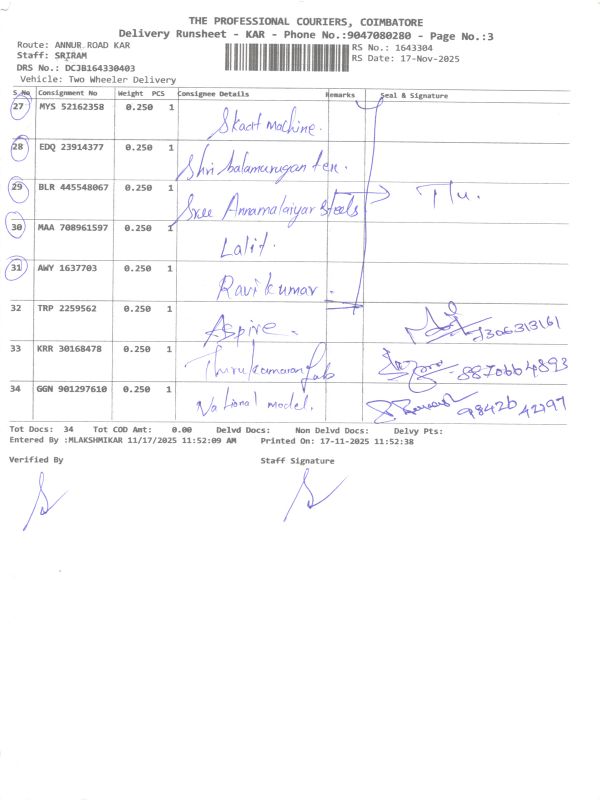 THE PROFESSIONAL COURIERS, COIMBATORE
Delivery Runsheet - KAR - Phone No.:9047080280 - Page No.:3
Route: ANNUR ROAD KAR
RS No.: 1643304
Staff: SRIRAM
RS Date: 17-Nov-2025
DRS No.: DCJB164330403
Vehicle: Two Wheeler Delivery
S.No Consignment No Weight PCS Consignee Details Remarks Seal & Signature
27 MYS 52162358 0.250 1
Skaat machine.
28 EDQ 23914377 0.250 1
Shri balamurugan tex.
29 BLR 445548067 0.250 1
Sree Annamalaiyar Steels
30 MAA 708961597 0.250 1
Lalit.
31 AWY 1637703 0.250 1
Ravi kumar
32 TRP 2259562 0.250 1
Aspire.
33 KRR 30168478 0.250 1
Thirukumaran Lab
8870664893
34 GGN 901297610 0.250 1
National model.
9842642797
Tot Docs: 34 Tot COD Amt: 0.00 Delvd Docs: Non Delvd Docs: Delvy Pts:
Entered By :MLAKSHMIKAR 11/17/2025 11:52:09 AM Printed On: 17-11-2025 11:52:38
Verified By Staff Signature